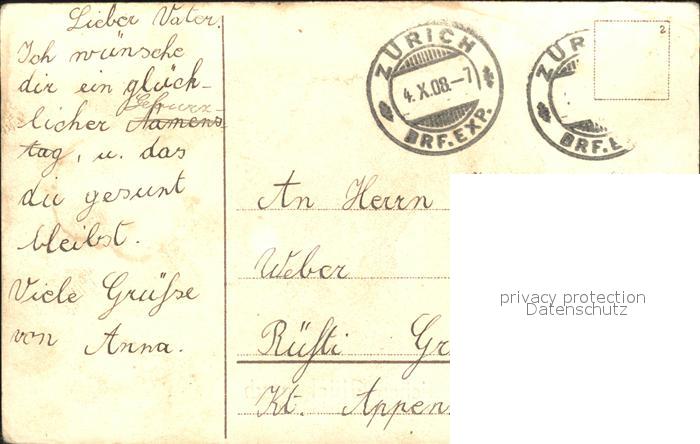 Lieber Vater!
Ich wünsche
dir ein glück-
licher Namens
tag, u. das
du gesunt
bleibst.
Viele Grüsse
von Anna.
ZÜRICH
4.X.08.–7
BRF.EXP.
ZÜR
BRF.E
2
An Herrn
Weber
Rüsti Gr
Kt. Appen
privacy protection
Datenschutz